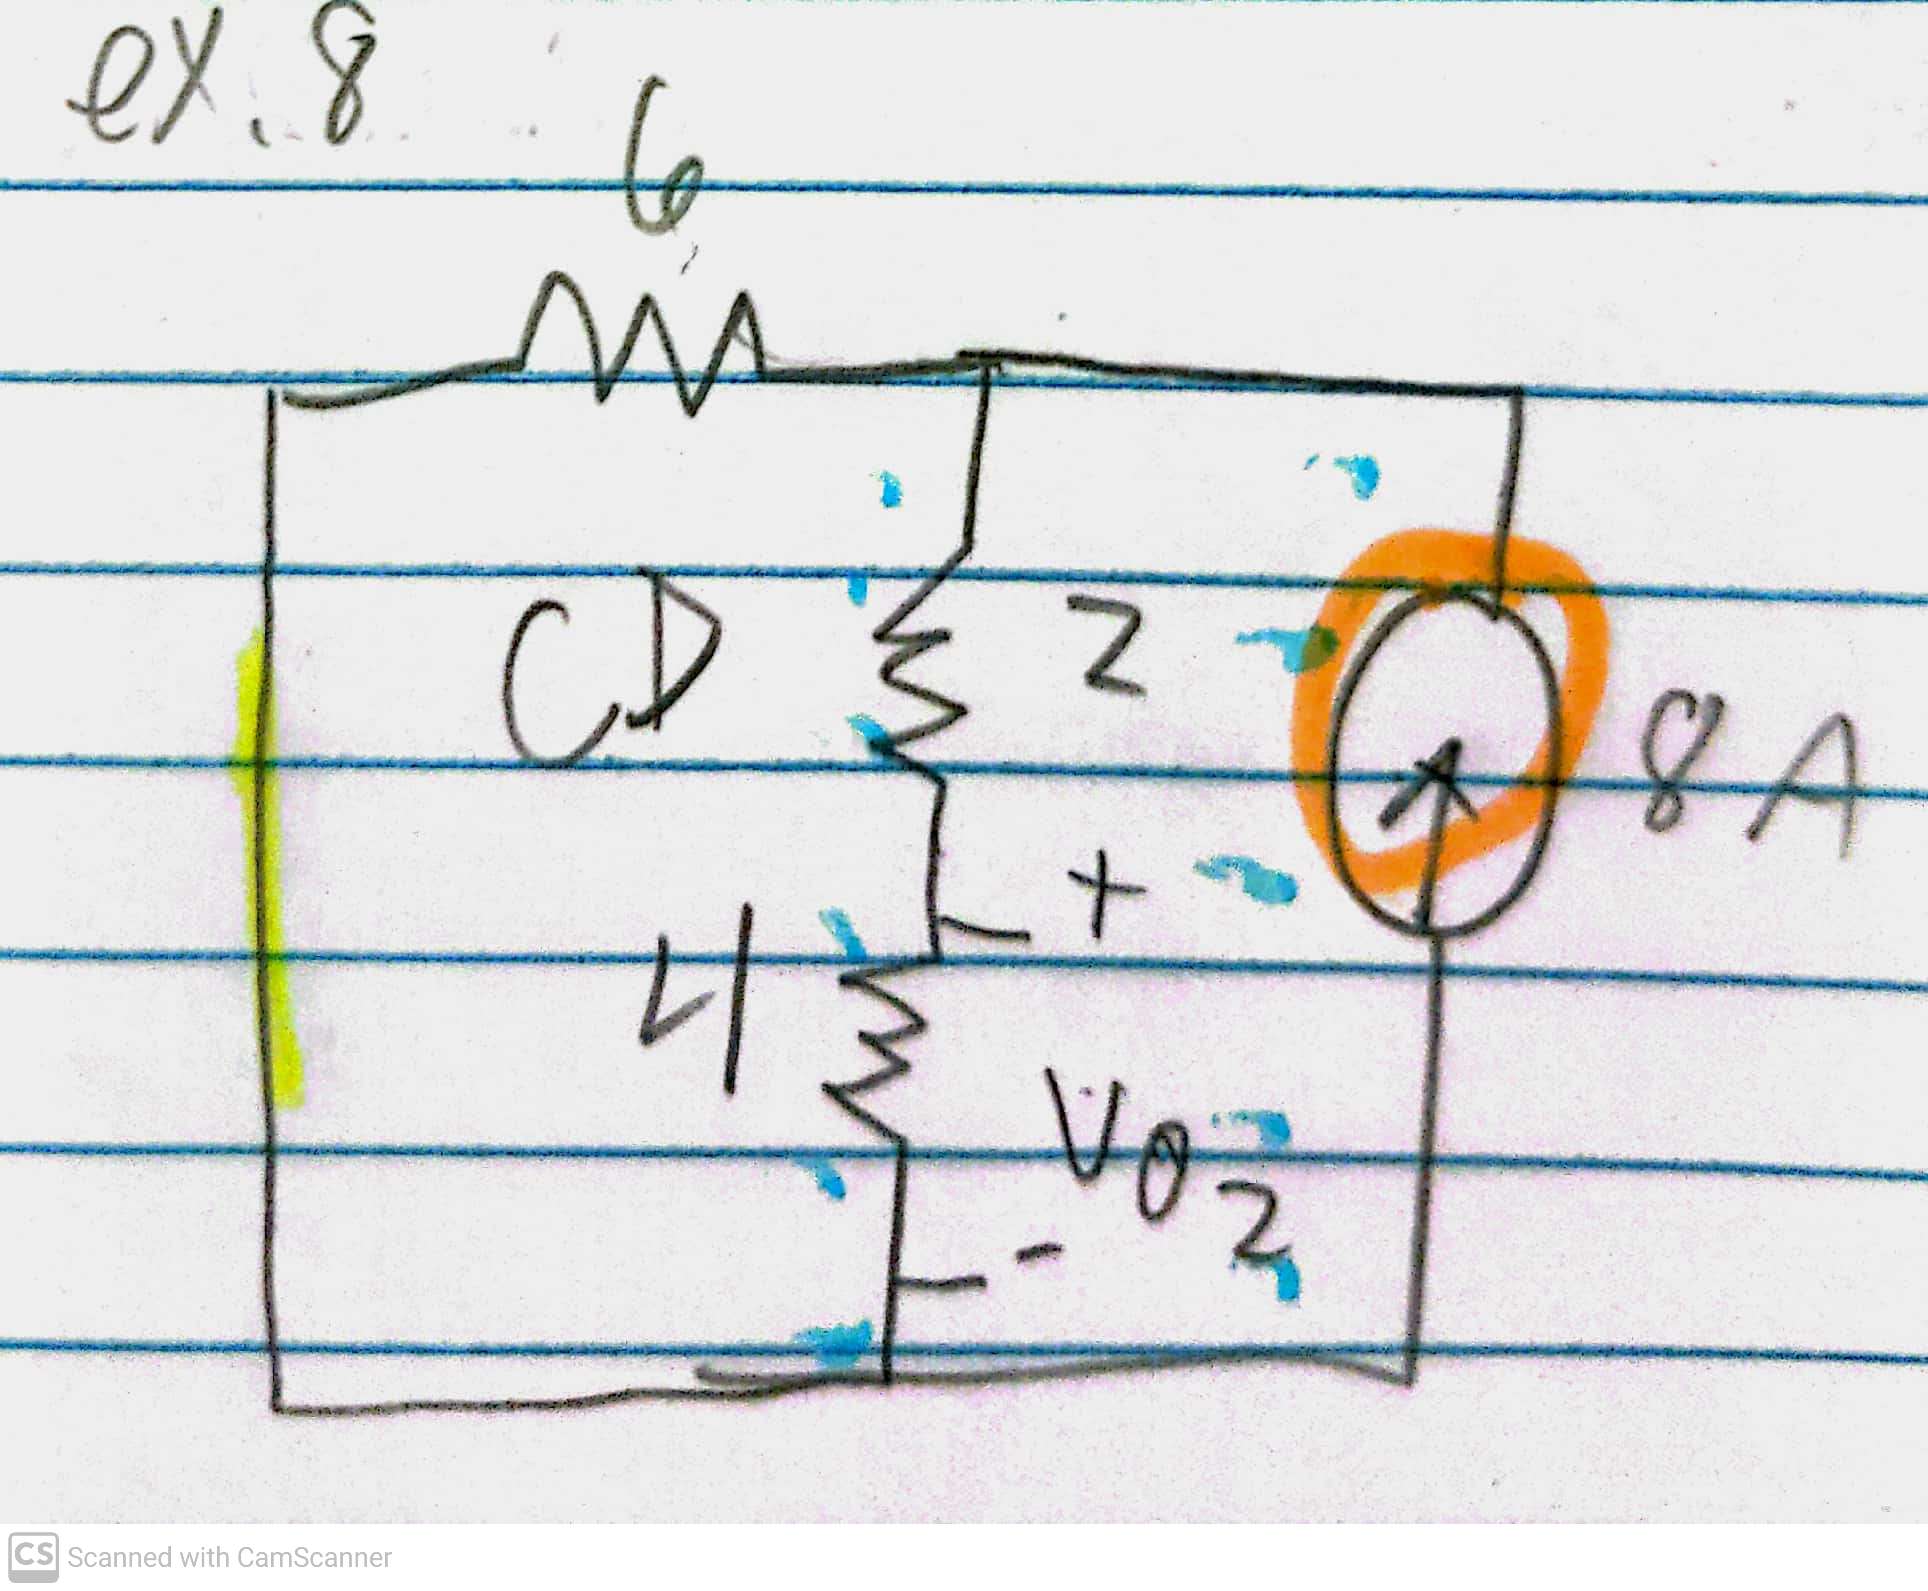 ex. 8
6
CD
2
8 A
+
4
Vo2
-
CS Scanned with CamScanner